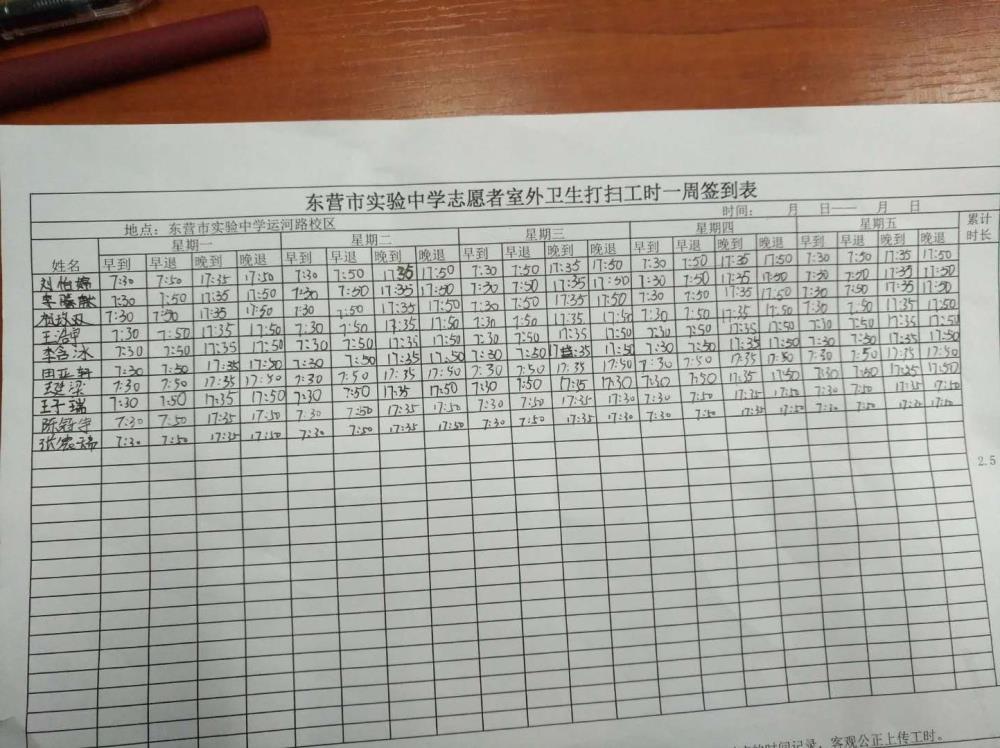 东营市实验中学志愿者室外卫生打扫工时一周签到表
地点：东营市实验中学运河路校区 时间： 月 日—— 月 日
姓名 星期一 星期二 星期三 星期四 星期五 累计时长
早到 早退 晚到 晚退 早到 早退 晚到 晚退 早到 早退 晚到 晚退 早到 早退 晚到 晚退 早到 早退 晚到 晚退
刘怡婷 7:30 7:50 17:35 17:50 7:30 7:50 17:35 17:50 7:30 7:50 17:35 17:50 7:30 7:50 17:35 17:50 7:30 7:50 17:35 17:50
7:30 7:50 17:35 17:50 7:30 7:50 17:35 17:50 7:30 7:50 17:35 17:50 7:30 7:50 17:35 17:50 7:30 7:50 17:35 17:50
7:30 7:50 17:35 17:50 7:30 7:50 17:35 17:50 7:30 7:50 17:35 17:50 7:30 7:50 17:35 17:50 7:30 7:50 17:35 17:50
王浩宇 7:30 7:50 17:35 17:50 7:30 7:50 17:35 17:50 7:30 7:50 17:35 17:50 7:30 7:50 17:35 17:50 7:30 7:50 17:35 17:50
李含冰 7:30 7:50 17:35 17:50 7:30 7:50 17:35 17:50 7:30 7:50 17:35 17:50 7:30 7:50 17:35 17:50 7:30 7:50 17:35 17:50
田亚轩 7:30 7:50 17:35 17:50 7:30 7:50 17:35 17:50 7:30 7:50 17:35 17:50 7:30 7:50 17:35 17:50 7:30 7:50 17:35 17:50
梁 7:30 7:50 17:35 17:50 7:30 7:50 17:35 17:50 7:30 7:50 17:35 17:30 7:30 7:50 17:35 17:50 7:30 7:50 17:25 17:50
王子瑞 7:30 7:50 17:35 17:50 7:30 7:50 17:35 17:50 7:30 7:50 17:35 17:30 7:30 7:50 17:35 17:50 7:30 7:50 17:35 17:50
陈 宇 7:30 7:50 17:35 17:50 7:30 7:50 17:35 17:50 7:30 7:50 17:35 17:30 7:30 7:50 17:35 17:50 7:30 7:50 17:35 17:50
张宏瑞 7:30 7:50 17:35 17:50 7:30 7:50 17:35 17:50
2.5
时间记录，客观公正上传工时。